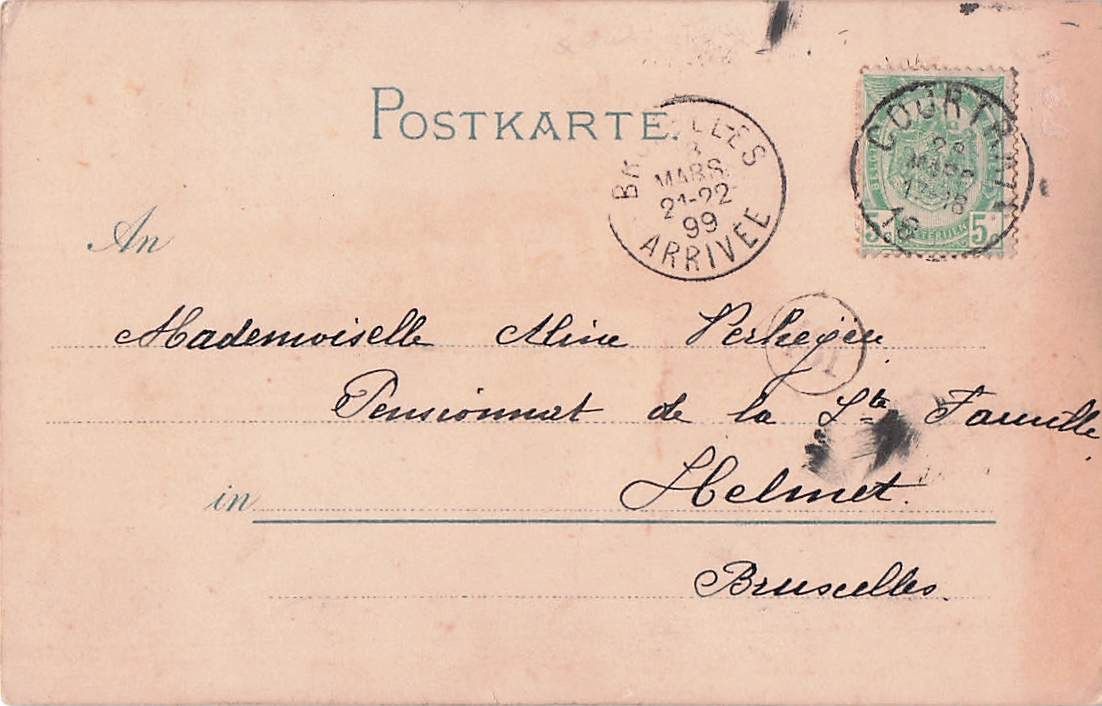 POSTKARTE.
BRUXELLES
8
MARS
21-22
99
ARRIVÉE
COURTRAI
28
MARS
17-18
5
5
An
Mademoiselle Aline Verhegen
Pensionnat de la Ste Famille
in Helmet.
Bruxelles.